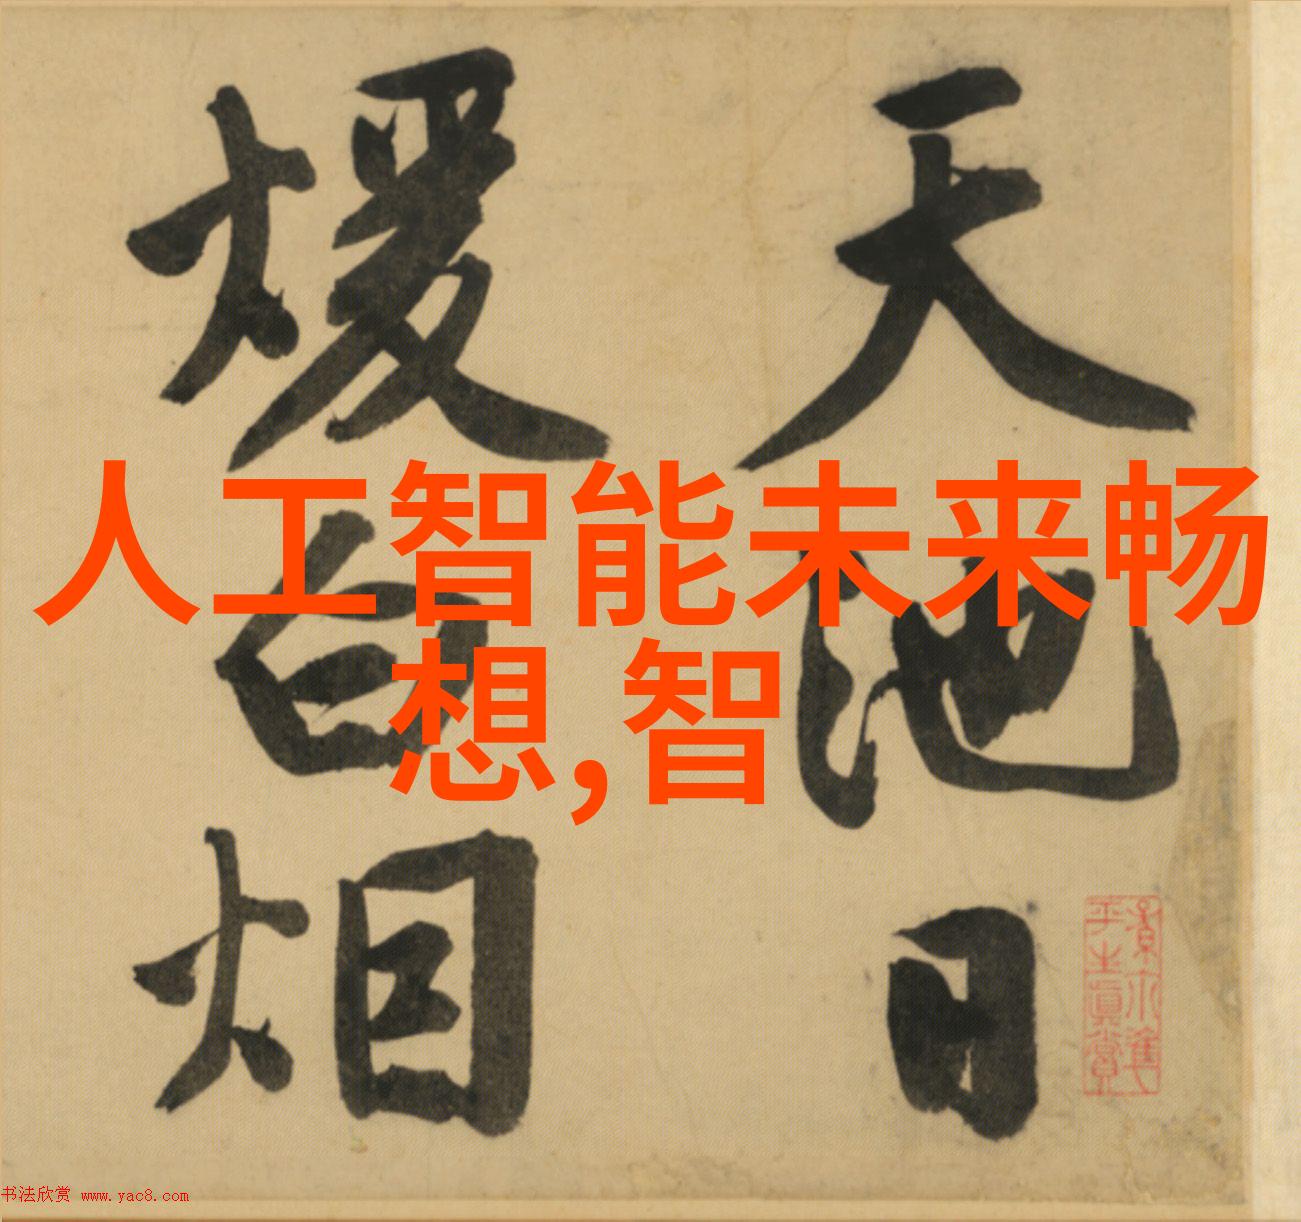 天池日
煖白烟
人工智能未来畅
想,智
平生真赏
书法欣赏 www.yac8.com